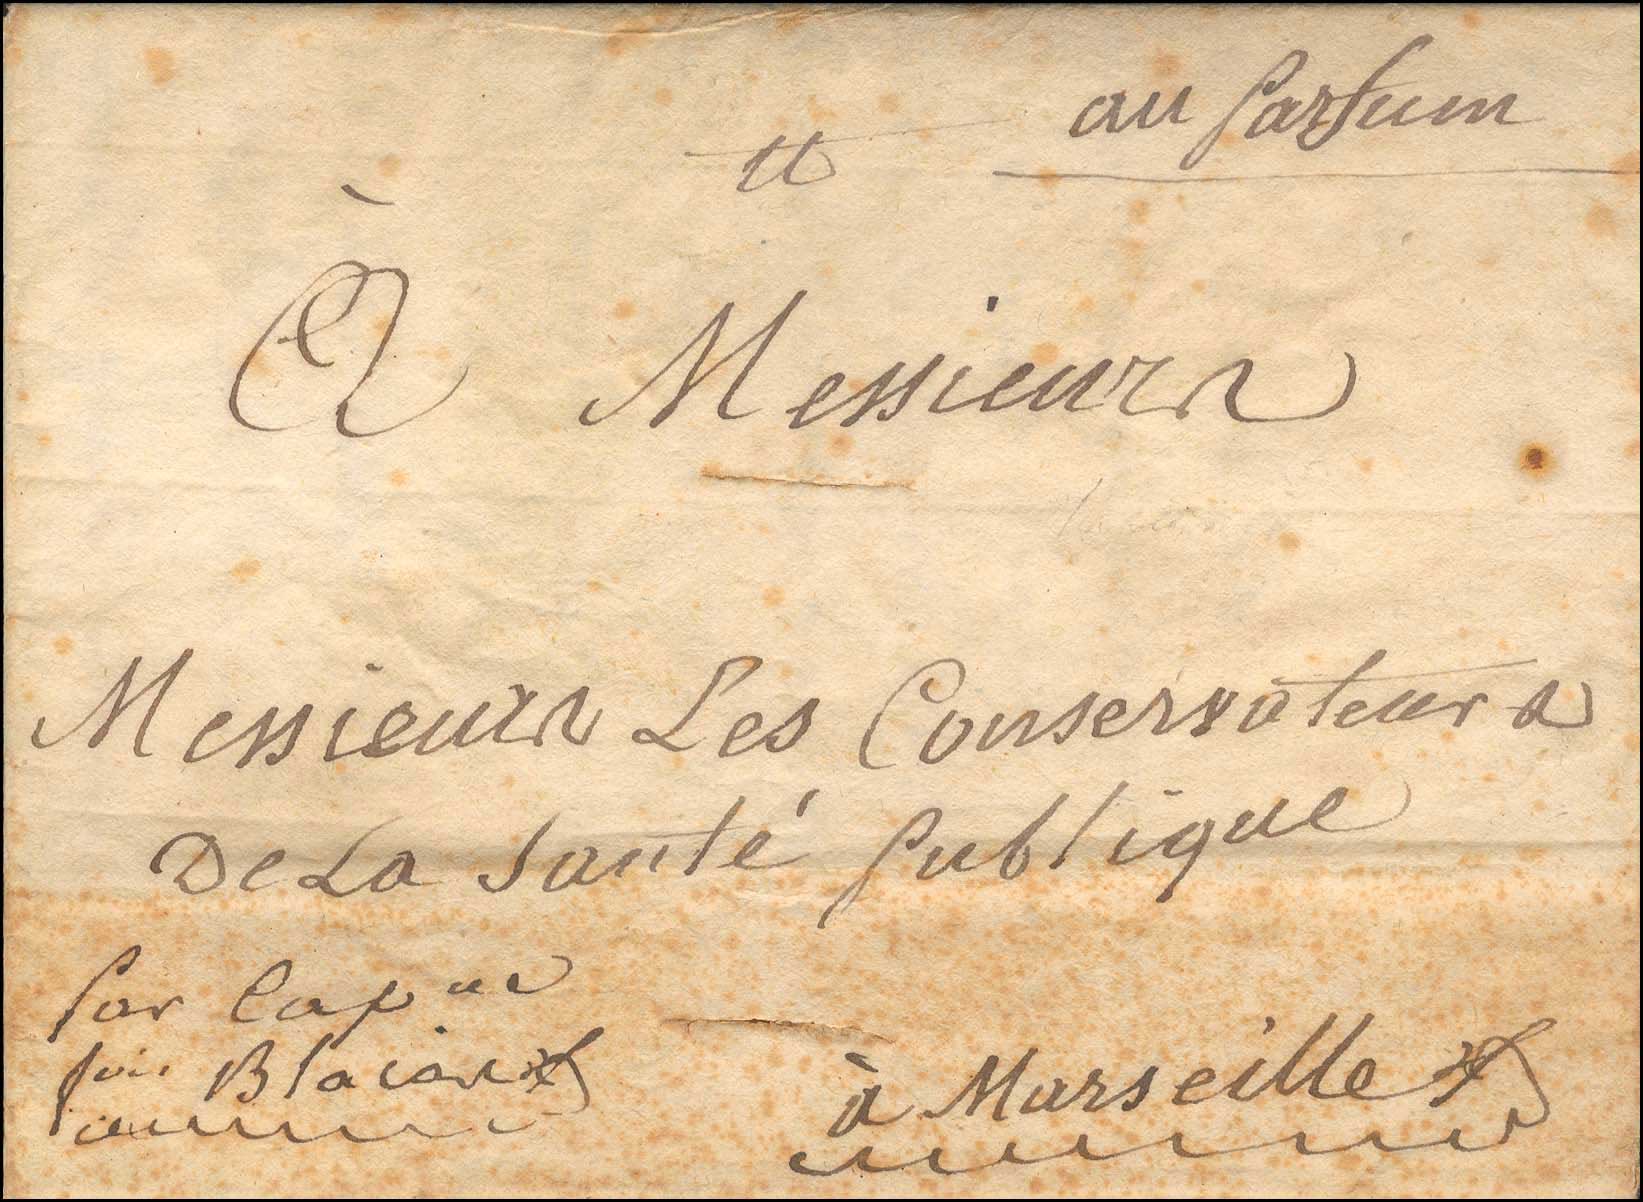 au parfum
tt
À Messieurs
Messieurs Les Conservateurs
De La Santé publique
par Cap ne
Blacar
à Marseille